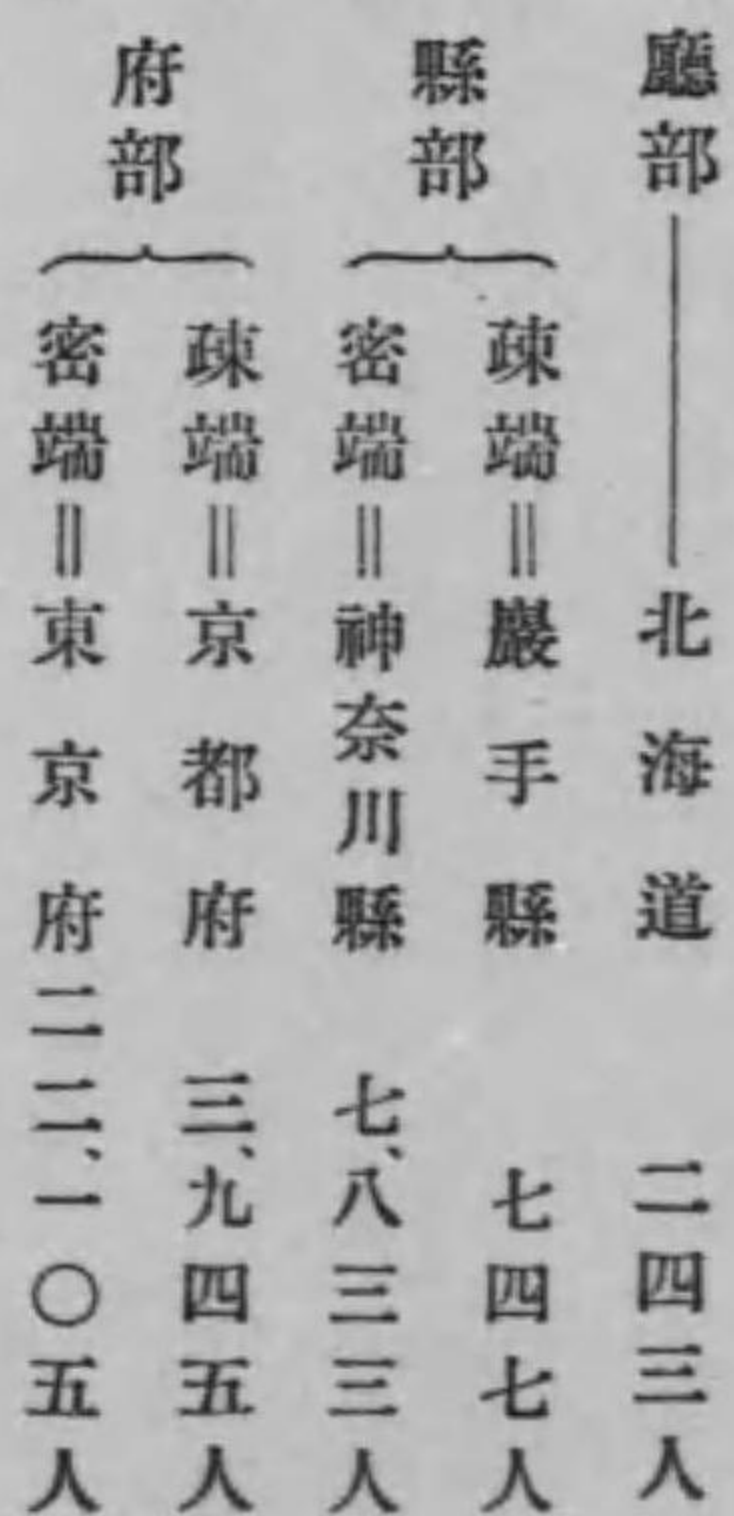 廳部――北海道 二四三人
縣部
疎端＝巖手縣 七四七人
密端＝神奈川縣 七、八三三人
府部
疎端＝京都府 三、九四五人
密端＝東京府 二二、一〇五人